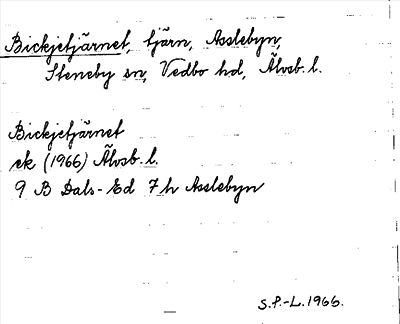 Bickjetjärnet, tjärn, Asslebyn,
Steneby sn, Vedbo hd, Älvsb. l.
Bickjetjärnet
ek (1966) Älvsb. l.
9 B Dals-Ed 7 h Asslebyn
S.P.-L. 1966.